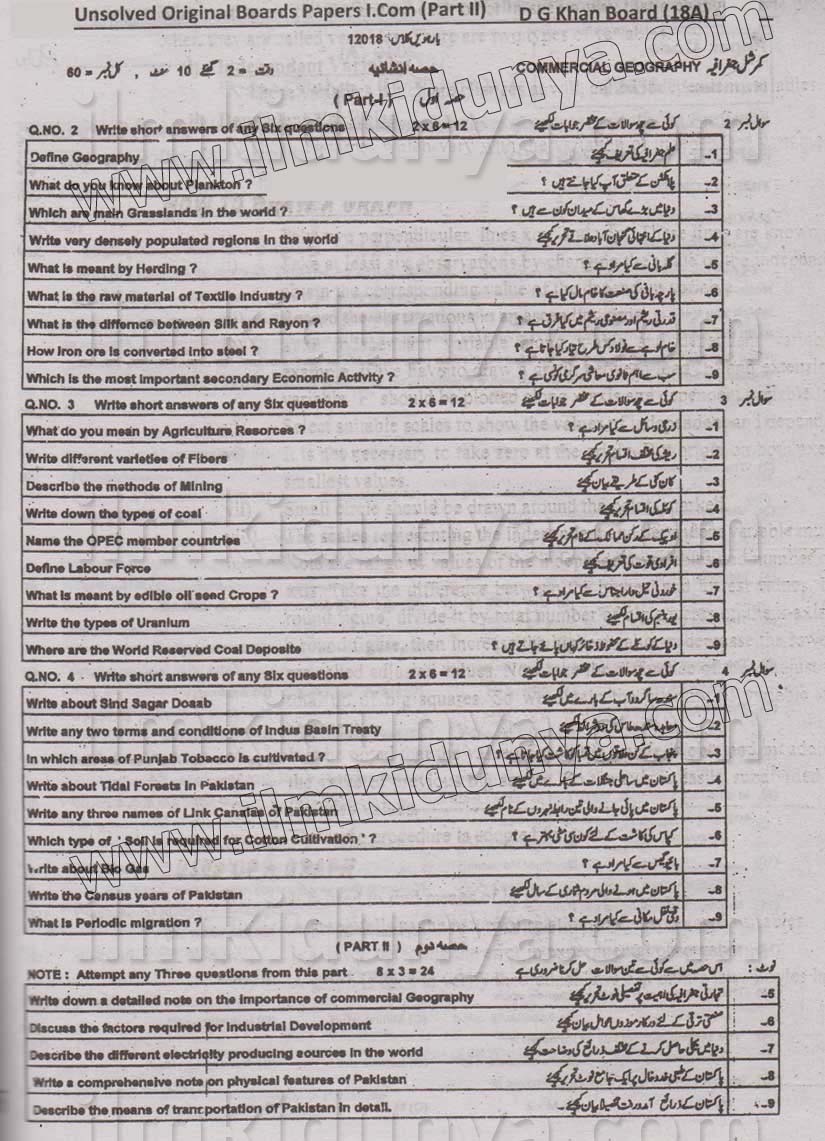 Unsolved Original Boards Papers I.Com (Part II) D G Khan Board (18A)
12018
COMMERCIAL GEOGRAPHY کمرشل جغرافیہ
حصہ انشائیہ وقت = 2 گھنٹے 10 منٹ کل نمبر = 60
( Part-I ) حصہ اول
Q.NO. 2 Write short answers of any Six questions 2 x 6 = 12 کوئی سے چھ سوالات کے مختصر جوابات لکھیئے سوال نمبر 2
Define Geography علم جغرافیہ کی تعریف کیجئے 1-
What do you know about Plankton ? پلانکٹن کے متعلق آپ کیا جانتے ہیں ؟ 2-
Which are main Grasslands in the world ? دنیا میں بڑے گھاس کے میدان کون سے ہیں ؟ 3-
Write very densely populated regions in the world دنیا کے انتہائی گنجان آباد علاقے تحریر کیجئے 4-
What is meant by Herding ? گلہ بانی سے کیا مراد ہے ؟ 5-
What is the raw material of Textile Industry ? پارچہ بافی کی صنعت کا خام مال کیا ہے ؟ 6-
What is the differnce between Silk and Rayon ? قدرتی ریشم اور مصنوعی ریشم میں کیا فرق ہے ؟ 7-
How iron ore is converted into steel ? خام لوہے سے فولاد کس طرح تیار کیا جاتا ہے ؟ 8-
Which is the most important secondary Economic Activity ? سب سے اہم ثانوی معاشی سرگرمی کونسی ہے ؟ 9-
Q.NO. 3 Write short answers of any Six questions 2 x 6 = 12 کوئی سے چھ سوالات کے مختصر جوابات لکھیئے سوال نمبر 3
What do you mean by Agriculture Resorces ? زرعی وسائل سے کیا مراد ہے ؟ 1-
Write different varieties of Fibers ریشہ کی مختلف اقسام تحریر کیجئے 2-
Describe the methods of Mining کان کنی کے طریقے بیان کیجئے 3-
Write down the types of coal کوئلہ کی اقسام تحریر کیجئے 4-
Name the OPEC member countries اوپیک کے رکن ممالک کے نام تحریر کیجئے 5-
Define Labour Force افرادی قوت کی تعریف کیجئے 6-
What is meant by edible oil seed Crops ? خوردنی تیل دار اجناس سے کیا مراد ہے ؟ 7-
Write the types of Uranium یورینیم کی اقسام لکھیئے 8-
Where are the World Reserved Coal Deposits دنیا کے کوئلے کے محفوظ ذخائر کہاں پائے جاتے ہیں ؟ 9-
Q.NO. 4 Write short answers of any Six questions 2 x 6 = 12 کوئی سے چھ سوالات کے مختصر جوابات لکھیئے سوال نمبر 4
Write about Sind Sagar Doaab آپ کے بارے میں لکھیئے 1-
Write any two terms and conditions of Indus Basin Treaty 2-
In which areas of Punjab Tobacco is cultivated ? پنجاب کے کن علاقوں میں تمباکو کاشت کیا جاتا ہے ؟ 3-
Write about Tidal Forests in Pakistan پاکستان میں ساحلی جنگلات کے بارے میں لکھیئے 4-
Write any three names of Link Canalas of Pakistan پاکستان میں پائی جانے والی تین رابطہ نہروں کے نام لکھیئے 5-
Which type of ' Soil is required for Cotton Cultivation ' ? کپاس کی کاشت کے لئے کون سی مٹی بہتر ہے ؟ 6-
Write about Bio Gas بائیو گیس سے کیا مراد ہے ؟ 7-
Write the Census years of Pakistan پاکستان میں ہونے والی مردم شماری کے سال لکھیئے 8-
What is Periodic migration ? نقل مکانی سے کیا مراد ہے ؟ 9-
( PART II ) حصہ دوم
NOTE : Attempt any Three questions from this part 8 x 3 = 24 اس حصہ میں سے کوئی سے تین سوالات حل کرنا ضروری ہے نوٹ :
Write down a detailed note on the importance of commercial Geography تجارتی جغرافیہ کی اہمیت پر تفصیلی نوٹ تحریر کیجئے 5-
Discuss the factors required for Industrial Development صنعتی ترقی کے لئے درکار موزوں عوامل بیان کیجئے 6-
Describe the different electricity producing sources in the world دنیا میں بجلی حاصل کرنے کے مختلف ذرائع کی وضاحت کیجئے 7-
Write a comprehensive note on physical features of Pakistan پاکستان کے طبعی خدوخال پر ایک جامع نوٹ تحریر کیجئے 8-
Describe the means of tranrportation of Pakistan in detail. پاکستان کے ذرائع آمدورفت تفصیلاً بیان کیجئے 9-
www.ilmkidunya.com
www.ilmkidunya.com